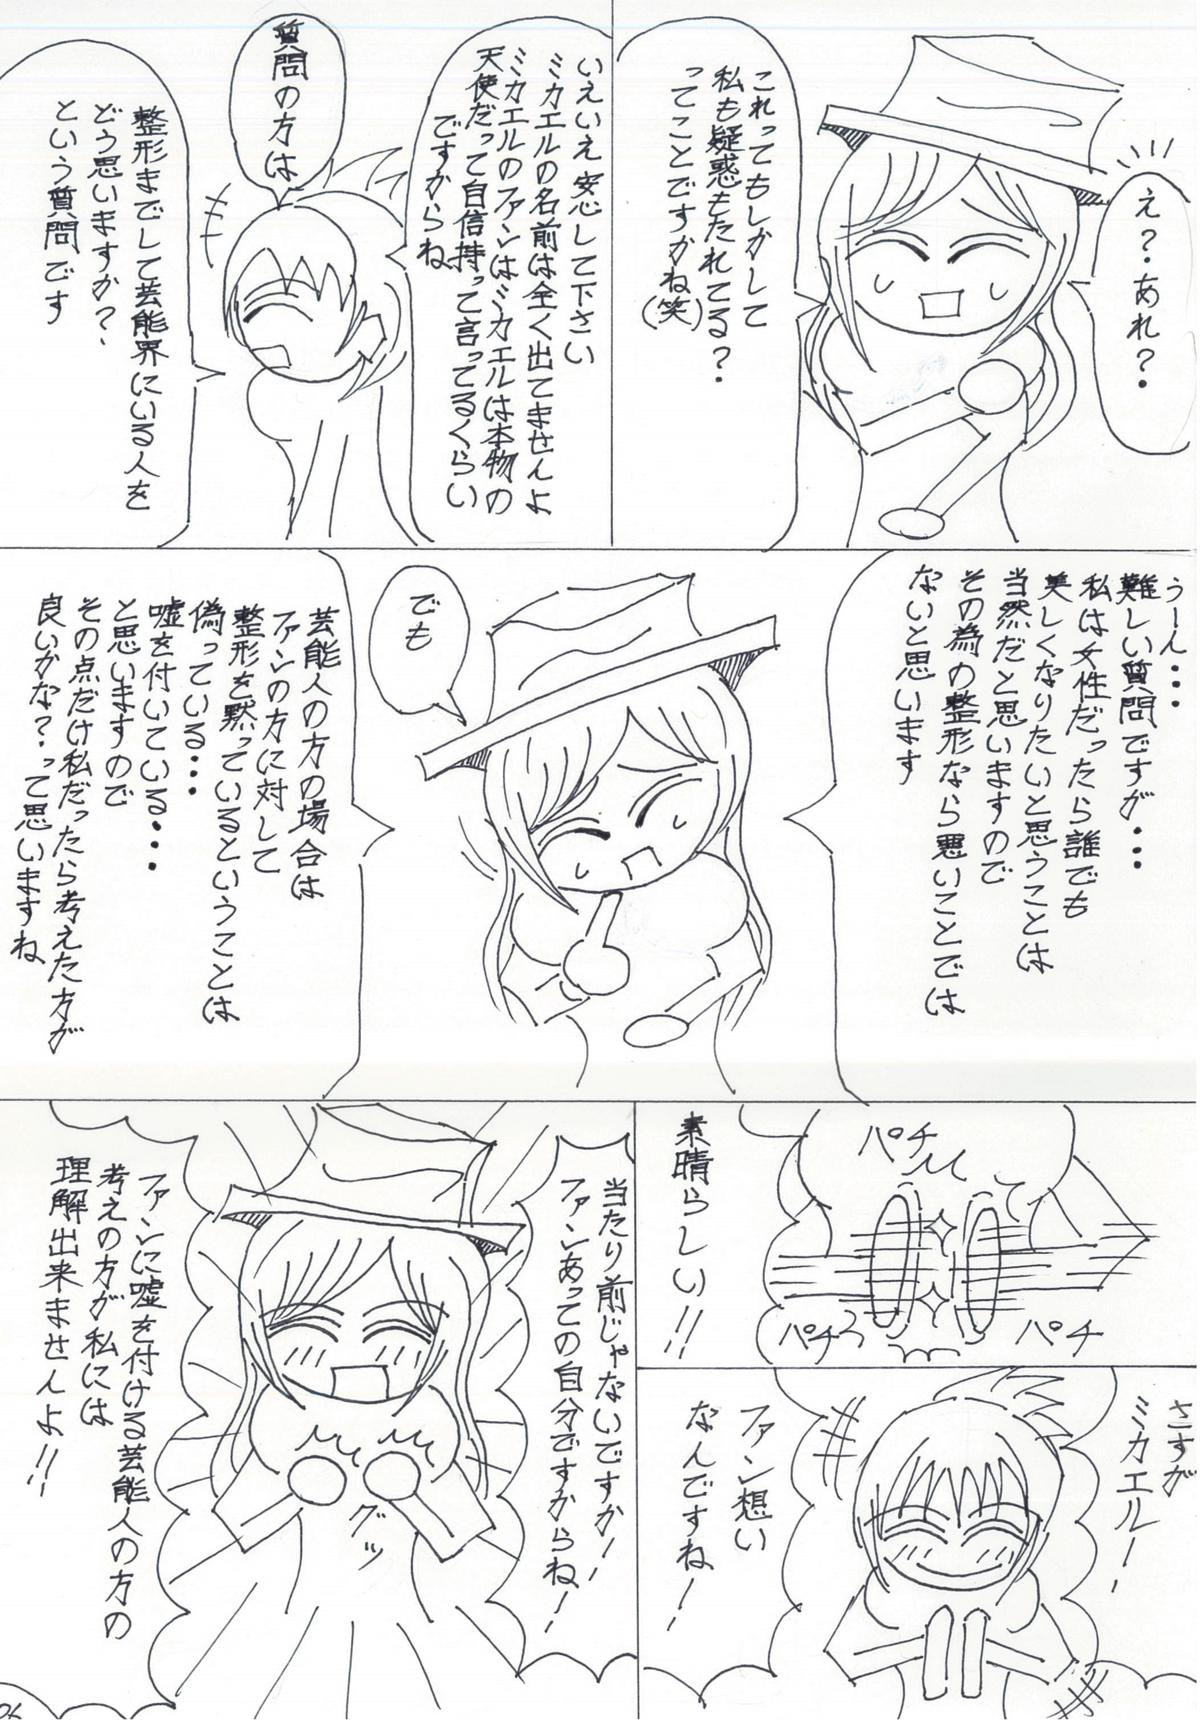 え?あれ?
これってもしかして
私も疑惑もたれてる?
ってことですかね(笑)
いえいえ安心して下さい
ミカエルの名前は全く出てませんよ
ミカエルのファンはミカエルは本物の
天使だって自信持って言ってるくらい
ですからね
質問の方は
整形までして芸能界にいる人を
どう思いますか?
という質問です
うーん・・・
難しい質問ですが・・・
私は女性だったら誰でも
美しくなりたいと思うことは
当然だと思いますので
その為の整形なら悪いことでは
ないと思います
でも
芸能人の方の場合は
ファンの方に対して
整形を黙っているということは
偽っている・・・
嘘を付いている・・・
と思いますので
その点だけ私だったら考えた方が
良いかな?って思いますね
パチ
パチ
パチ
素晴らしい!!
さすが
ミカエル!
ファン想い
なんですね!
当たり前じゃないですか!
ファンあっての自分ですからね!
グッ
ファンに嘘を付ける芸能人の方の
考えの方が私には
理解出来ませんよ!!